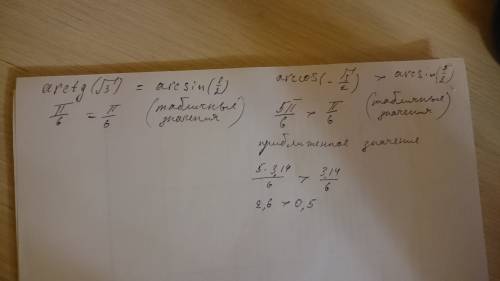 arctg(√3) = arcsin(1/2)
π/6 = π/6 (табличные значения)
arccos(-√3/2) > arcsin(1/2)
5π/6 > π/6 (табличные значения)
приближенное значение
5·3,14/6 > 3,14/6
2,6 > 0,5